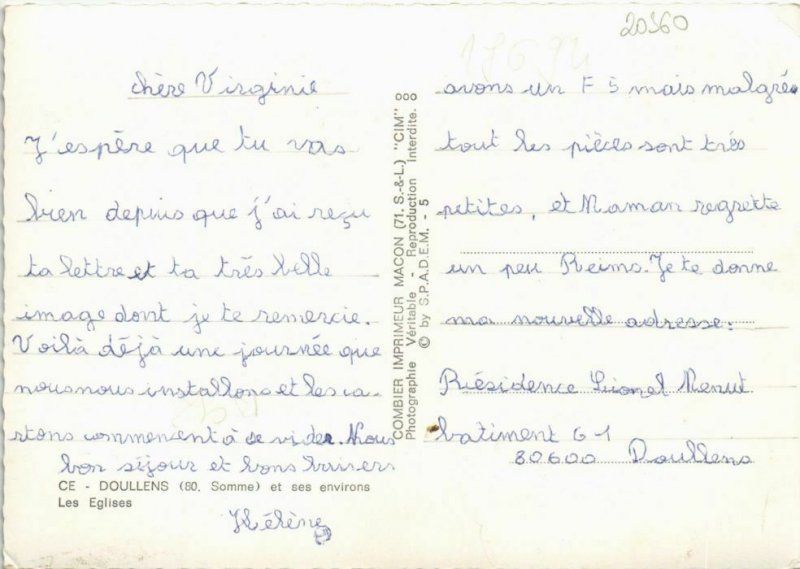 20360
17694
chère Virginie
J'espère que tu vas
bien depuis que j'ai reçu
ta lettre et ta très belle
image dont je te remercie.
Voilà déjà une journée que
nous nous installons et les ca-
rtons commencent à se vider. Nous
avons un F 5 mais malgré
tout les pièces sont très
petites, et Maman regrette
un peu Reims. Je te donne
ma nouvelle adresse:
Résidence Lionel Menut
batiment G1
80600 Doullens
bon séjour et bons baisers
Hélène
CE - DOULLENS (80. Somme) et ses environs
Les Eglises
COMBIER IMPRIMEUR MACON (71. S.-&-L.) "CIM"
Photographie Véritable - Reproduction Interdite.
© by S.P.A.D.E.M. - 5